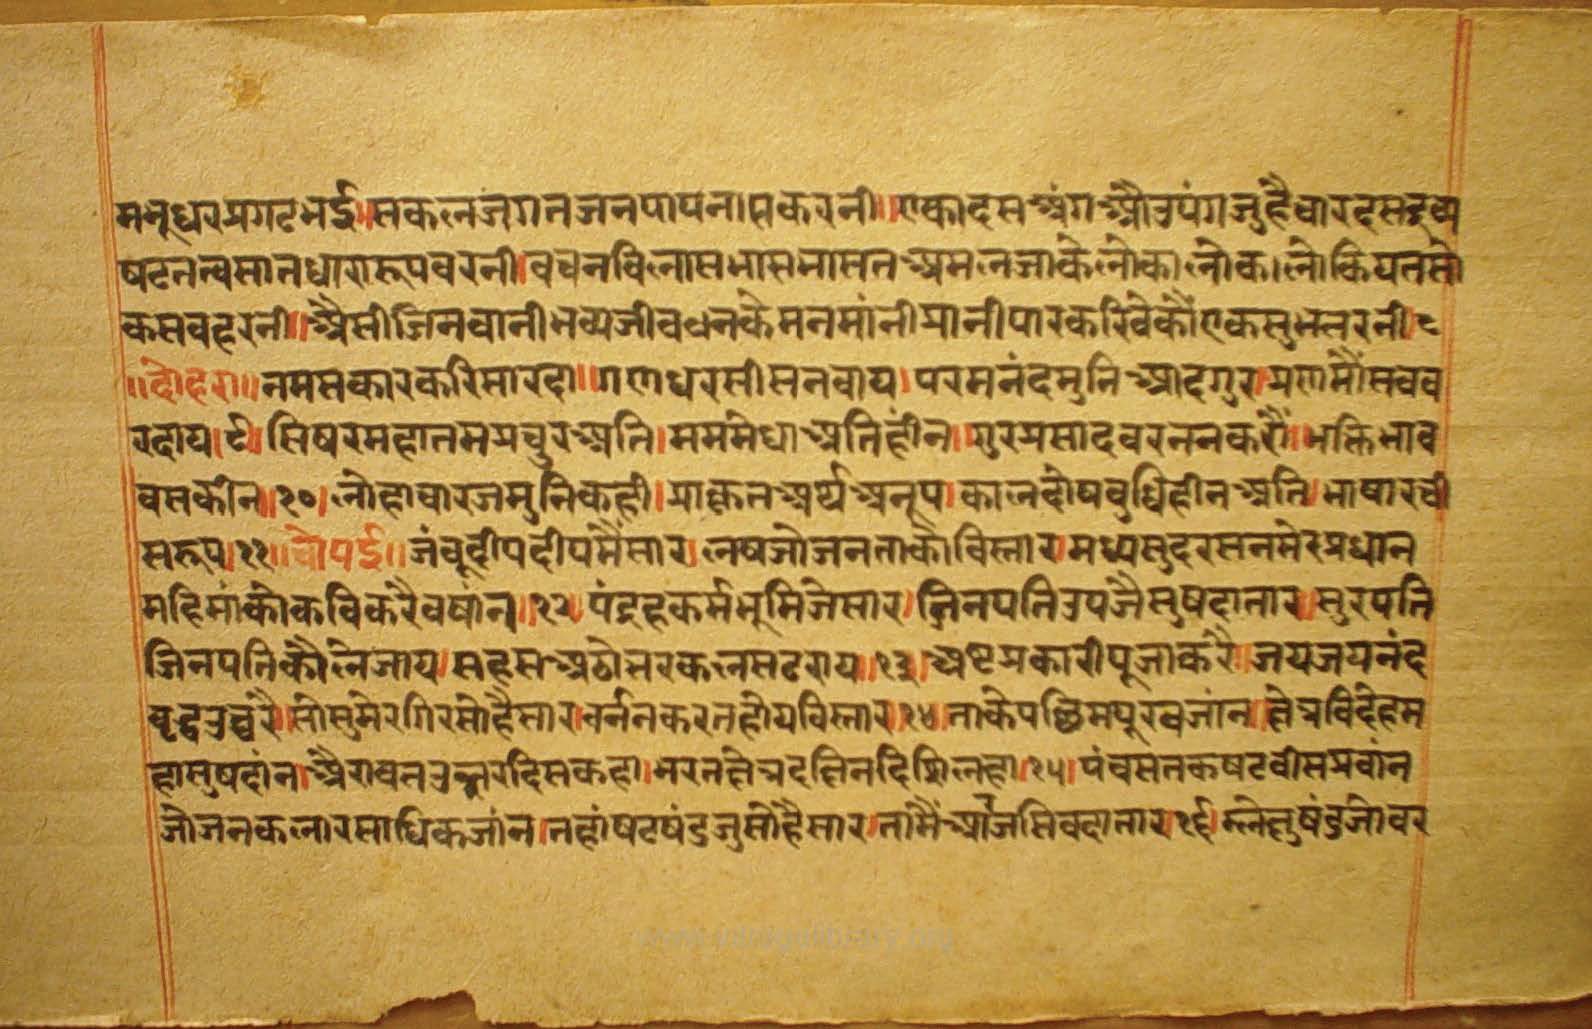 मनूधरप्रगटभई॥सकलजंगतजनपापनासकरनी॥एकादसअंगऔउपंगजुहैचारदसद्रव्य
षटतत्वसातधारारूपवरनी।वचनविलासभासभासतअमलजाकेलोकालोकालोकिपतसो
कसबहरनी॥ऐसीजिनवानीभव्यजीवधनकेमनमांनीप्रानीपारकरिवेकौंएकसुभतरनी।८
॥दोहरा॥नमसकारकरिसारदा॥गणधरसीसनवाय।परमनंदमुनिआदगुर।प्रणमौंसबव
रदाय।९।सिषरमहातमप्रचुरअति।मममेधाअतिहीन।गुरप्रसादवरननकरौं॥भक्तिभाव
वसकीन।१०।लोहाचारजमुनिकही।प्राकृतअर्थअनूप।कालदोषबुधिहीनअति।भाषारची
सरूप।११॥चौपई॥जंबूदीपदीपमैंसार।लषजोजनताकौविस्तार।मध्यसुदरसनमेरप्रधान
महिमांकोकविकरैबषांन॥१२।पंद्रहकर्मभूमिजेसार।जिनपतिउपजैसुषदातार।सुरपति
जिनपतिकौलेजाय।सहसअठोत्तरकलसटराय॥१३।अष्टप्रकारीपूजाकरै।जयजयनंद
वृद्धउच्चरै।सोसुमेरगिरसोहैसार।वर्ननकरतहोयविस्तार।१४।ताकेपछिमपूरवजांन।क्षेत्रविदेहम
हासुषदांन।ऐरावतउत्तरदिसकहा।भरतक्षेत्रदक्षिनदिशिलहा।१५।पंचसतकषटवीसप्रवांन
जोजनकलारसाधिकजांन।तहांषटषंडजुसोहैसार।तामैंआर्जसिवदातार।१६।म्लेक्षुषंडजोवर